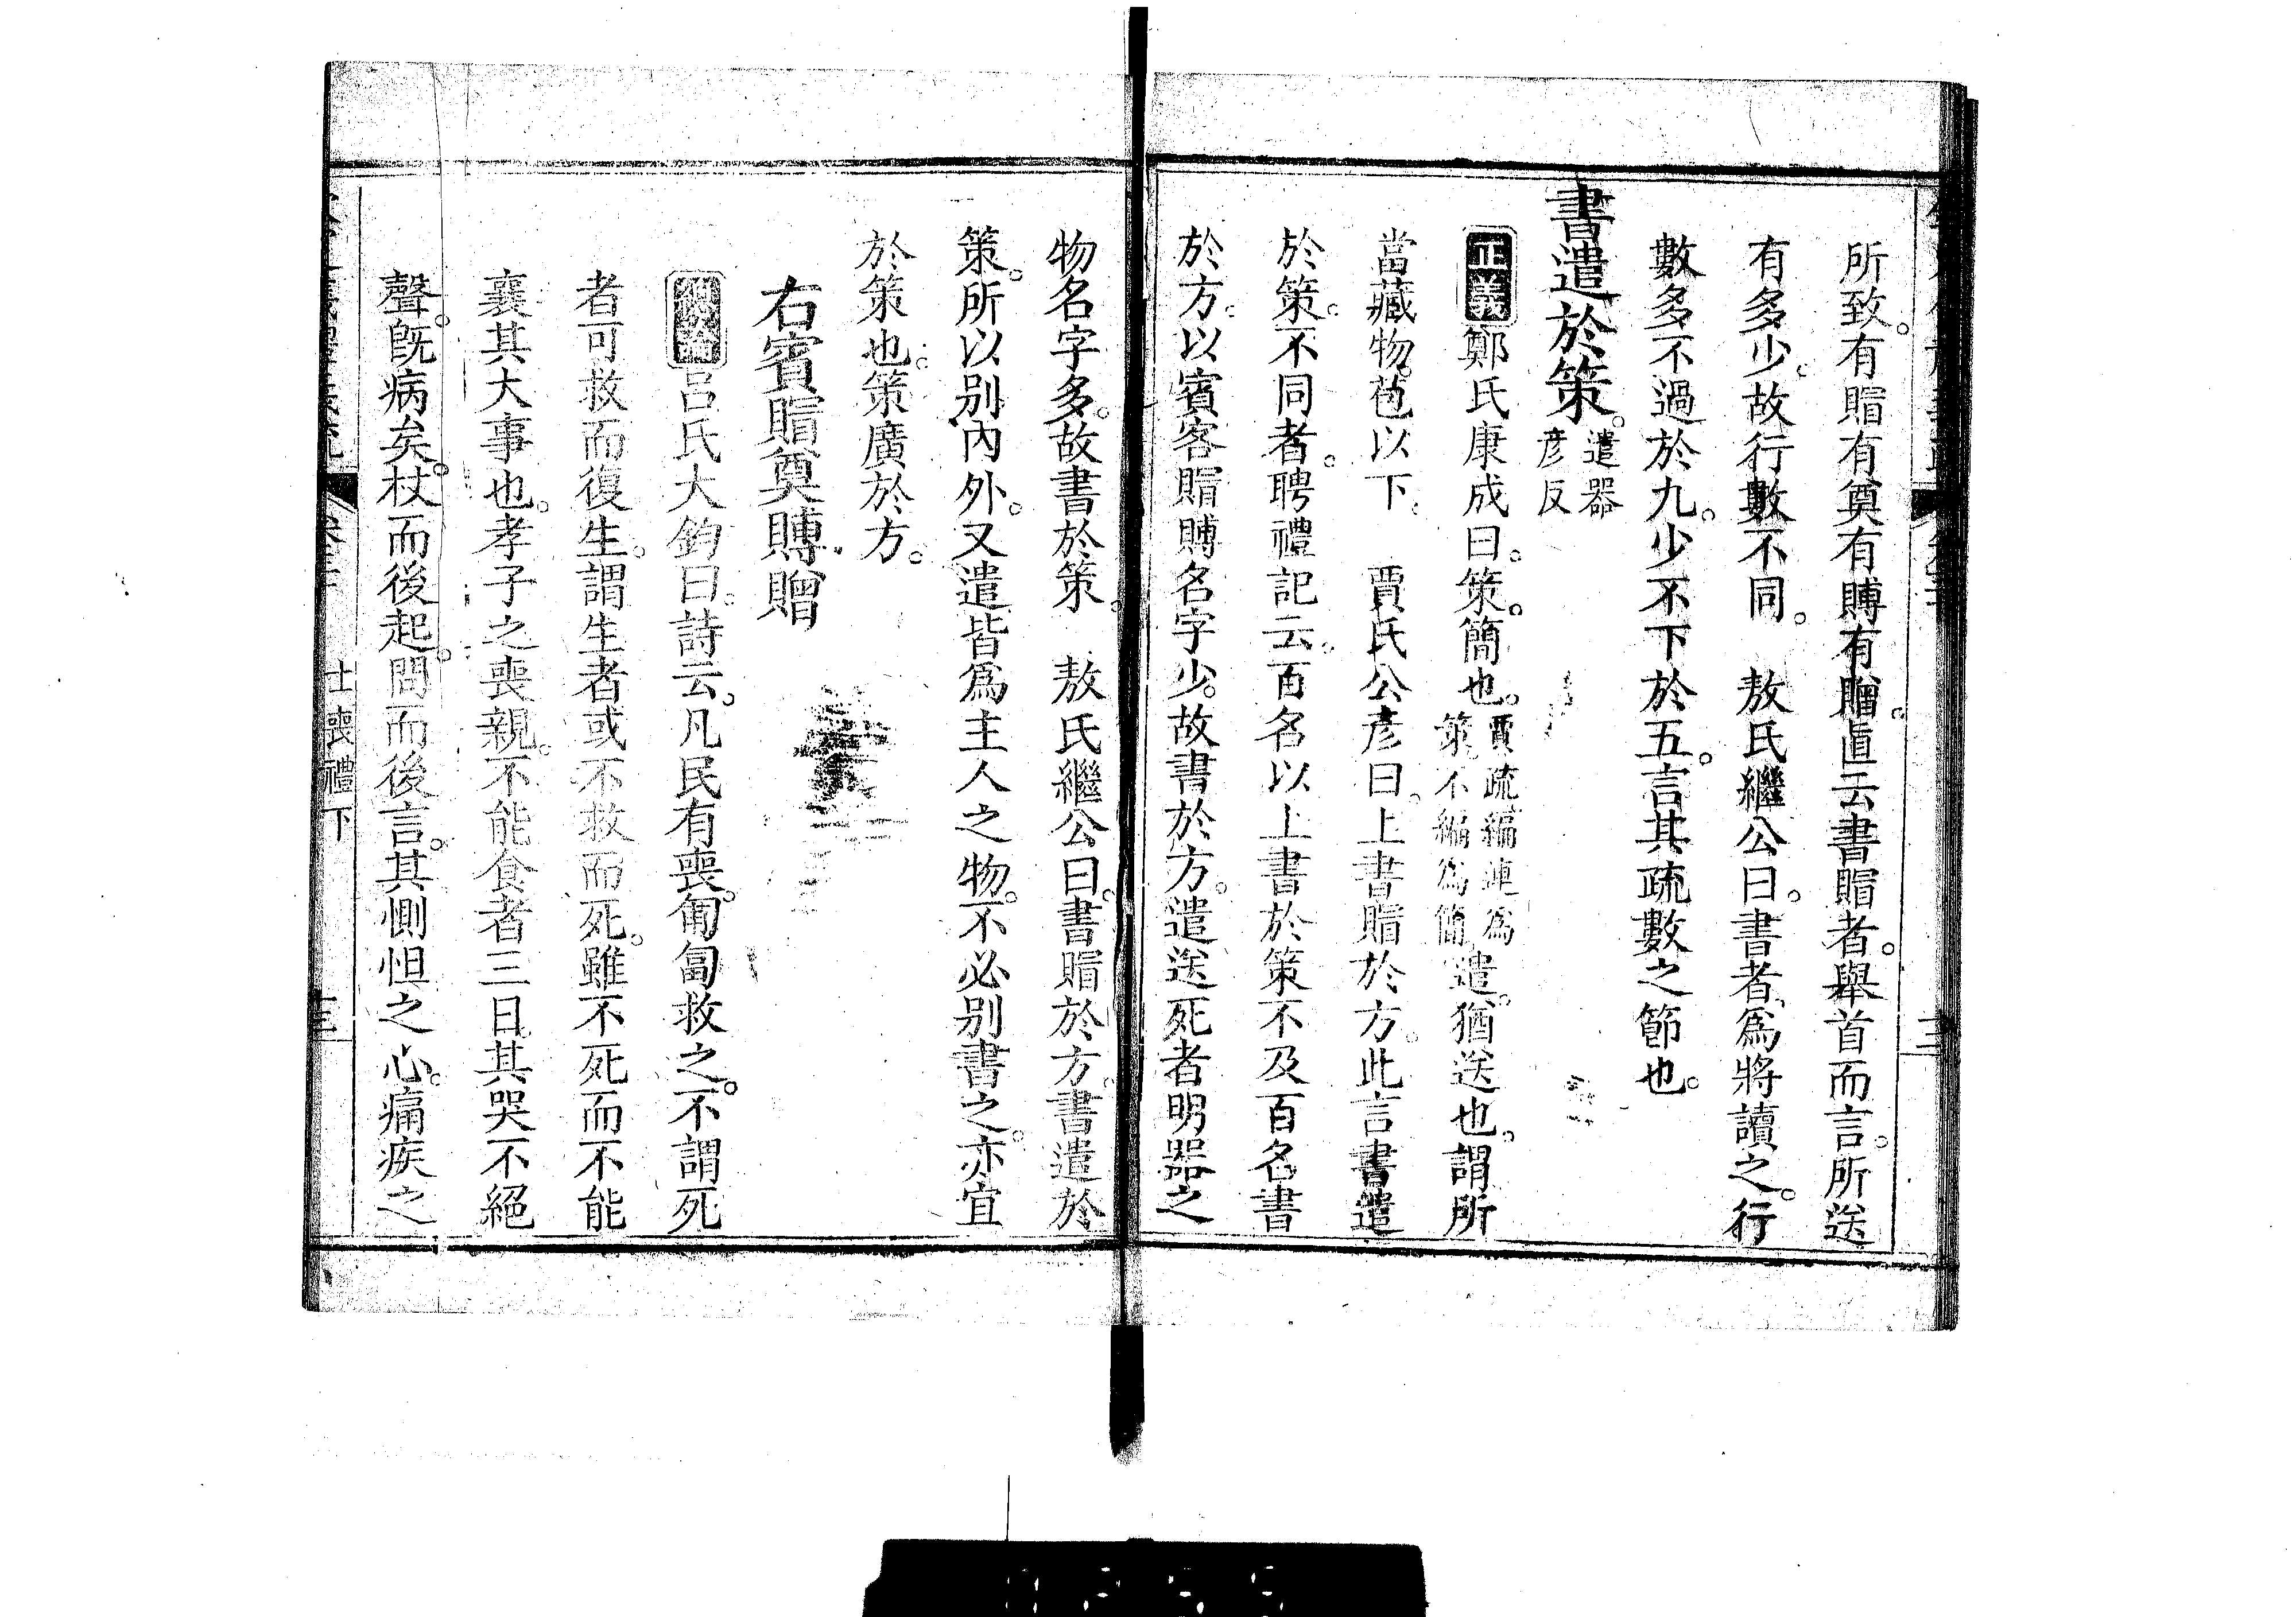 所致。有賵有奠有賻有贈。直云書賵者。舉首而言。所送
有多少。故行數不同。　敖氏繼公曰。書者、爲將讀之。行
數多不過於九。少不下於五。言其疏數之節也。
書遣於策。遣器
彦反
正義鄭氏康成曰。策。簡也。賈疏編連爲
策。不編爲簡。遣。猶送也。謂所
當藏物。茵以下。　賈氏公彦曰。上書賵於方。此言書遣
於策。不同者。聘禮記云。百名以上書於策不及百名書
於方。以賓客賵賻名字少。故書於方。遣送死者明器之
物名字多。故書於策。　敖氏繼公曰。書賵於方。書遣於
策。所以别內外。又遣皆爲主人之物。不必别書之。亦宜
於策也。策廣於方。
右賓賵奠賻贈
呂氏大鈞曰。詩云。凡民有喪。匍匐救之。不謂死
者可救而復生。謂生者或不救而死。雖不死而不能
襄其大事也。孝子之喪親。不能食者三日其哭不絕
聲。旣病矣。杖而後起。問而後言。其惻怛之心。痛疾之
士喪禮下